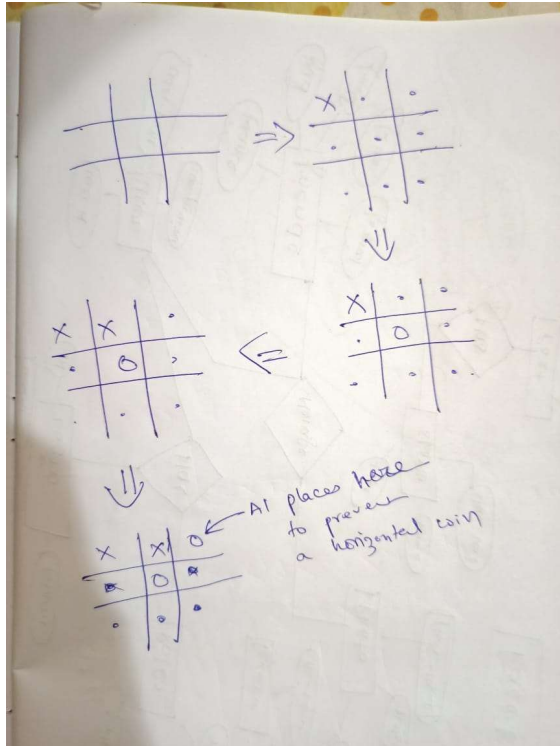 X
X
O
X X
O
X X O
O
AI places here
to prevent
a horizontal win